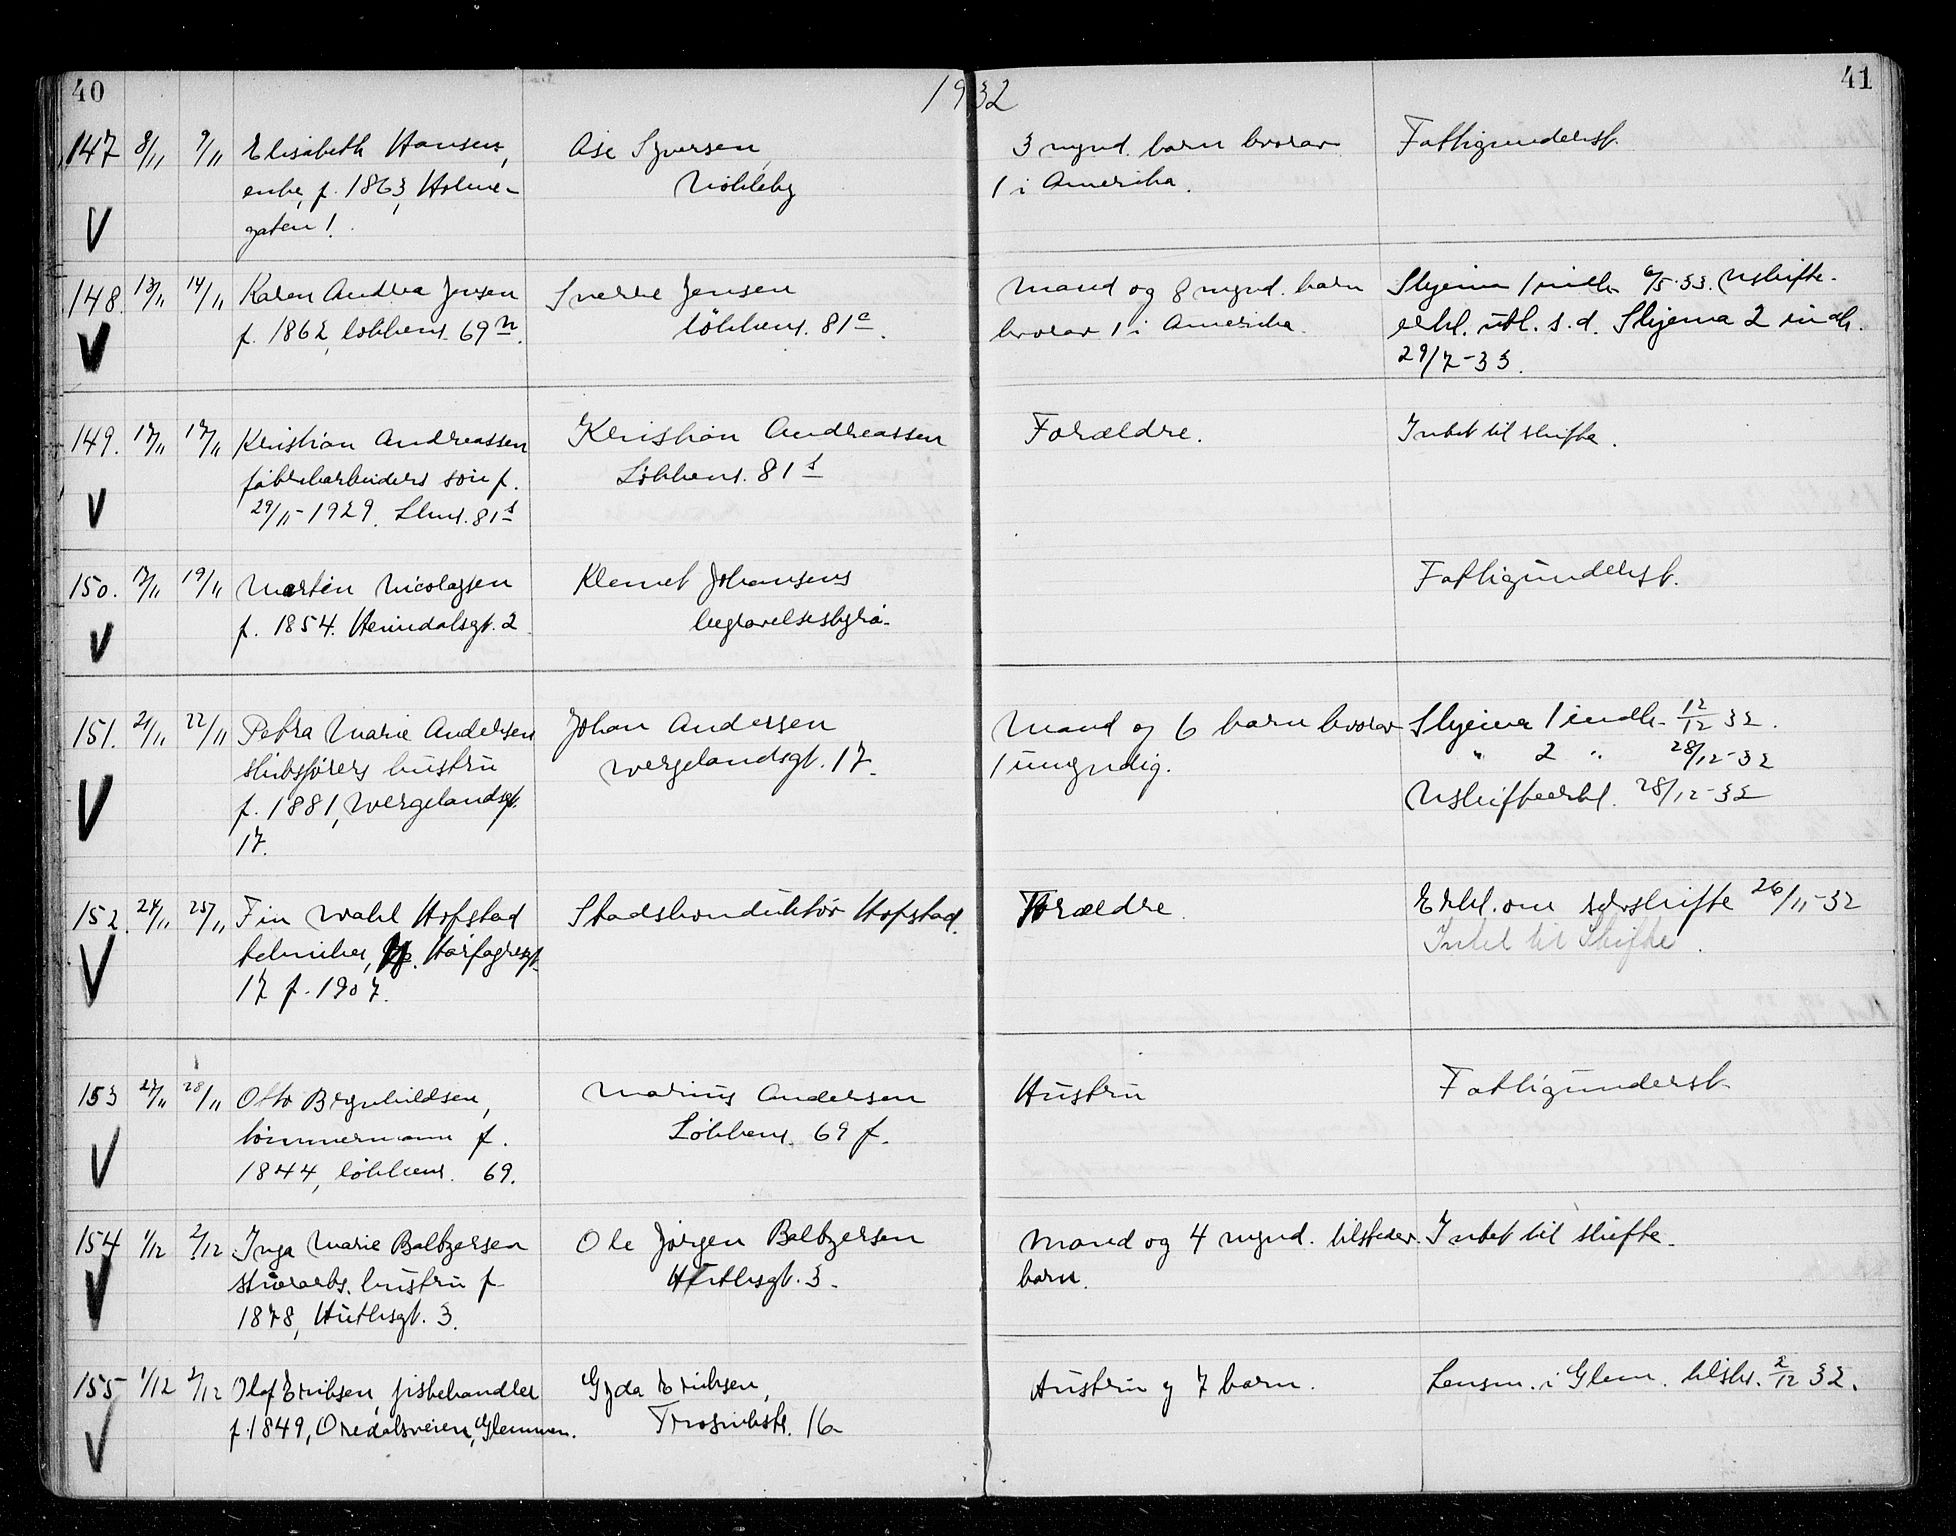 40
1932
41
147 8/11 9/11 Elisabeth Hansen,
enke, f. 1863, Holme-
gaten 1.
Åse Syversen,
Nökleby
3 mynd. barn hvorav
1 i Amerika.
Fattigunderst.
148. 13/11 14/11 Karen Andrea Jensen
f. 1862, lökkens. 69 n.
Sverre Jensen
lökkens. 81 c.
Mand og 8 mynd. barn
hvorav 1 i Amerika.
Skjema 1 indk. 6/5-33. Uskifte-
erkl. utl. s.d. Skjema 2 indk.
29/7-33.
149. 17/11 17/11 Kristian Andreassen
fabrikarbeiders sön f.
29/11-1929. Lkns. 81 s
Kristian Andreassen
Lökkens. 81 s
Forældre.
Intet til skifte.
150. 17/11 19/11 Martin Nicolaysen
f. 1854. Heimdalsgt. 2
Klemet Johansens
begravelsesbyrå.
Fattigunderst.
151. 21/11 22/11 Petra Marie Andersen
skibsförers hustru
f. 1881, Wergelandsgt.
17.
Johan Andersen
Wergelandsgt. 17.
Mand og 6 barn hvorav
1 umyndig.
Skjema 1 indk. 12/12 32.
" 2 " 28/12-32
Uskifteerkl. 28/12-32
152. 24/11 25/11 Fin Wahl Hofstad
tekniker, Hårfagresgt.
17 f. 1907.
Stadskonduktör Hofstad.
Forældre.
Erkl. om selvskifte 26/11-32
Intet til Skifte.
153 27/11 28/11 Otto Brynhildsen,
tömmermann f.
1844, lökkens. 69.
Marius Andersen
Lökkens. 69 f.
Hustru
Fattigunderst.
154 1/12 2/12 Inga Marie Baltzersen
stuerarb. hustru f.
1878, Huthsgt. 3.
Ole Jörgen Baltzersen
Huthsgt. 3.
Mand og 4 mynd. tilstedev.
barn.
Intet til skifte.
155 1/12 2/12 Olaf Eriksen, fiskehandler
f. 1849, Oredalsveien, Glemmen.
Gyda Eriksen,
Trosvikstr. 16
Hustru og 7 barn.
Lensm. i Glem. tilskr. 2/12 32.